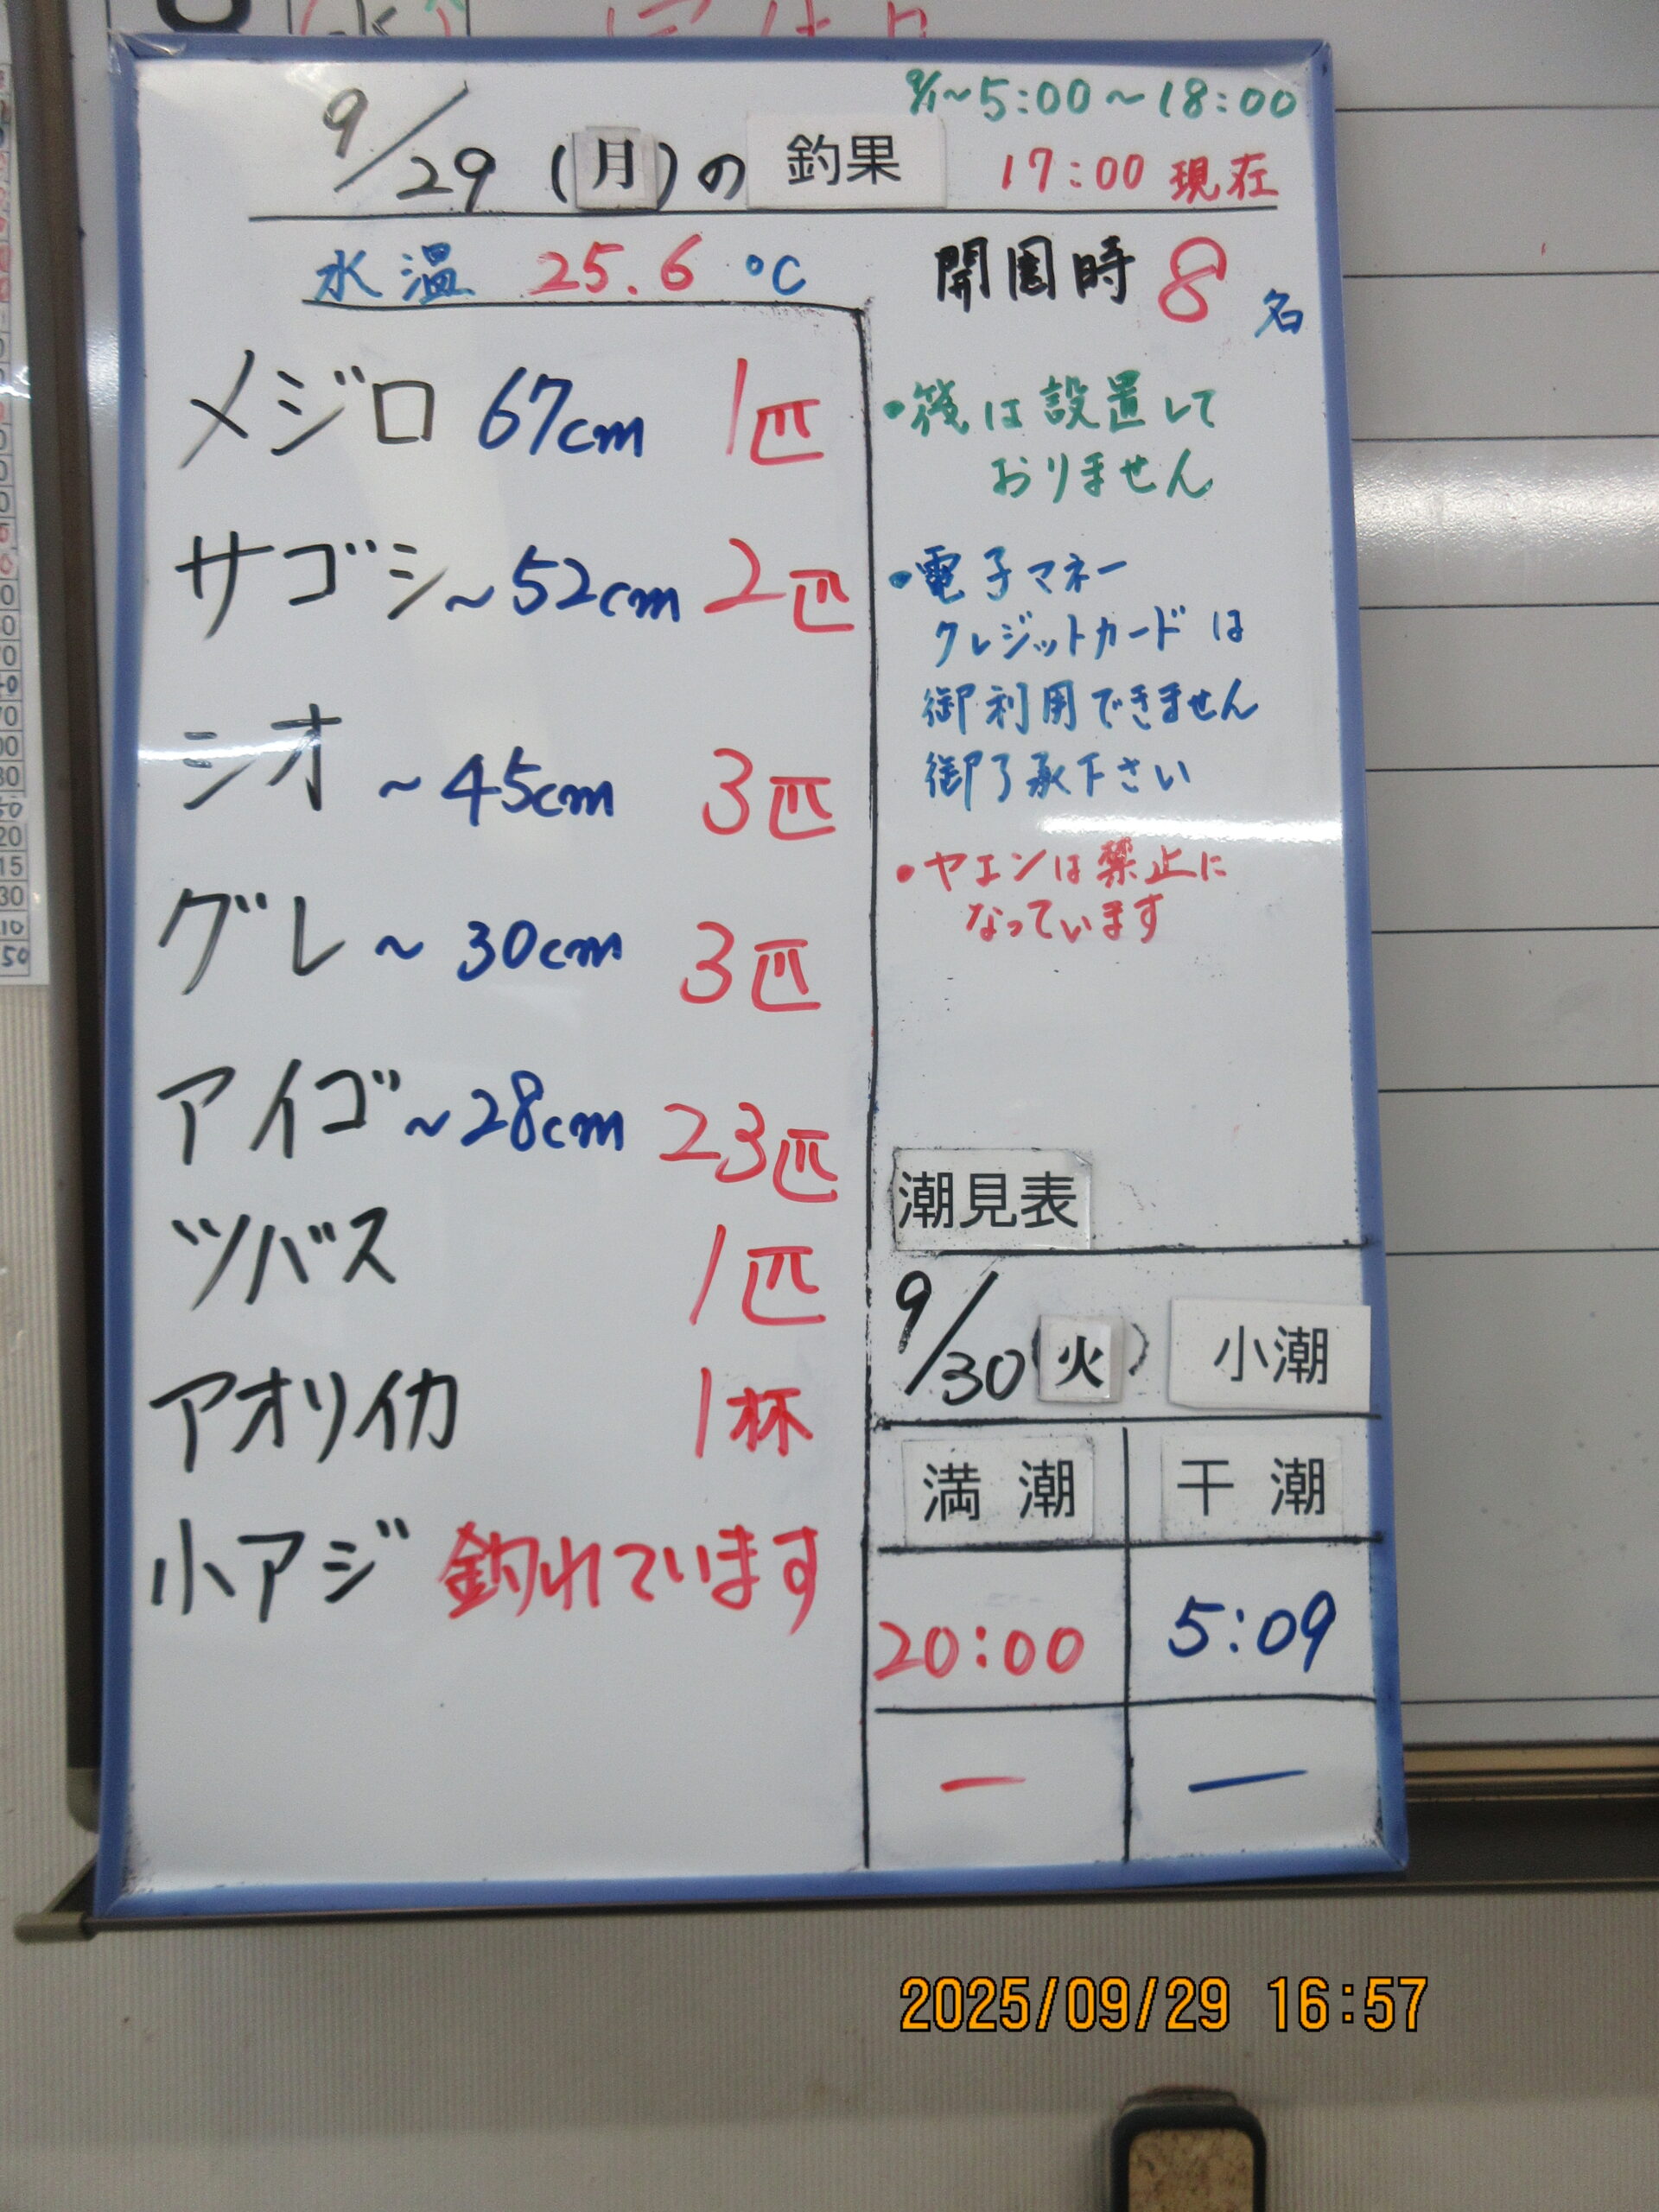 9/1~5:00~18:00
9/29(月)の 釣果 17:00 現在
水温 25.6 ℃
開園時 8名
メジロ 67cm 1匹
サゴシ ~52cm 2匹
シオ ~45cm 3匹
グレ ~30cm 3匹
アイゴ ~28cm 23匹
ツバス 1匹
アオリイカ 1杯
小アジ 釣れています
・筏は設置して
おりません
・電子マネー
クレジットカードは
御利用できません
御了承下さい
・ヤエンは禁止に
なっています
潮見表
9/30(火) 小潮
満潮 干潮
20:00 5:09
— —
2025/09/29 16:57